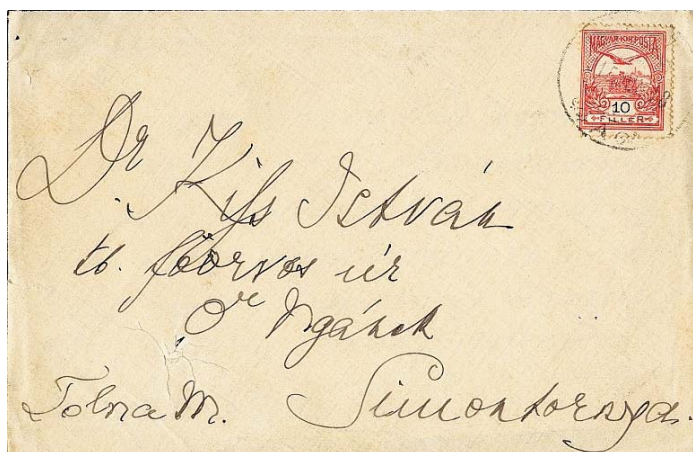 MAGYAR KIR. POSTA
10
FILLÉR
Dr. Kiss István
tb. főorvos úr
Ő Ngának
Tolna M. Simontornya.